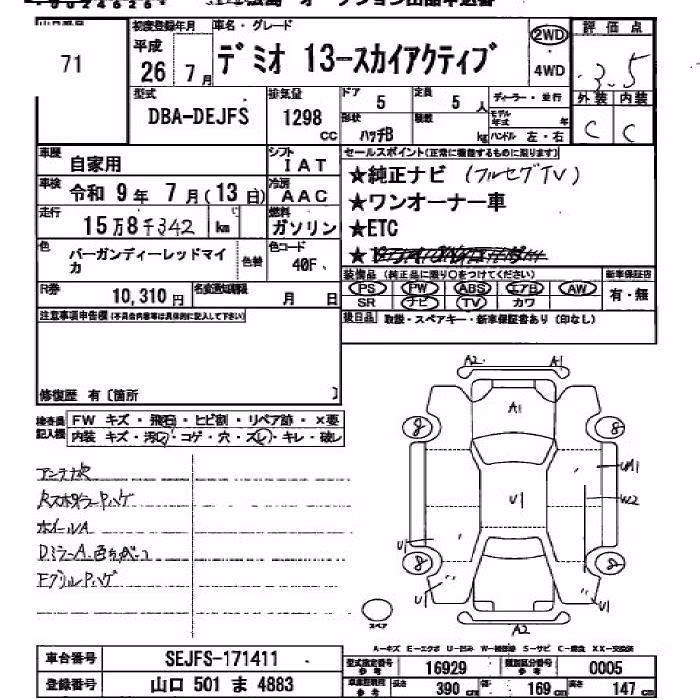 71
初度登録年月
平成
26 7月
車名・グレード
デミオ 13-スカイアクティブ
2WD
4WD
評価点
3.5
外装 内装
C C
型式
DBA-DEJFS
排気量
1298
cc
ドア
5
定員
5 人
形状
ハッチB
積載
kg
ディーラー・並行
モデル年式
年
ハンドル 左・右
車歴
自家用
シフト
IAT
車検
令和 9年 7月(13日)
冷房
AAC
走行
15万8千342 km
燃料
ガソリン
色
バーガンディーレッドマイカ
色替
色コード
40F
R券
10,310 円
名変通知期限
月 日
セールスポイント(正常に機能するものに限ります)
★純正ナビ (フルセグTV)
★ワンオーナー車
★ETC
★
装備品(純正品に限り○をつけてください)
PS PW ABS エアB AW
SR ナビ TV カワ
新車保証書
有・無
後日品 取説・スペアキー・新車保証書あり(印なし)
注意事項申告欄(不具合内容等は具体的に記入して下さい)
修復歴 有〔箇所 〕
検査員記入欄
FW キズ・飛石・ヒビ割・リペア跡・×要
内装 キズ・汚レ・コゲ・穴・スレ・キレ・破レ
アンテナ欠
Rスポイラーアハゲ
ホイールA
DミラーA.色ちがい
FグリルPハゲ
A2 A1
A1
8 8
U1
UA1
W2
U1
8 8
U1 U1
A2
スペア
A-キズ E-エクボ U-凹み W-補修跡 S-サビ C-腐食 XX-交換済
車台番号
SEJFS-171411
登録番号
山口 501 ま 4883
型式指定番号
参考
16929
類別区分番号
参考
0005
車両寸法
参考
長さ
390 cm
幅
169 cm
高さ
147 cm